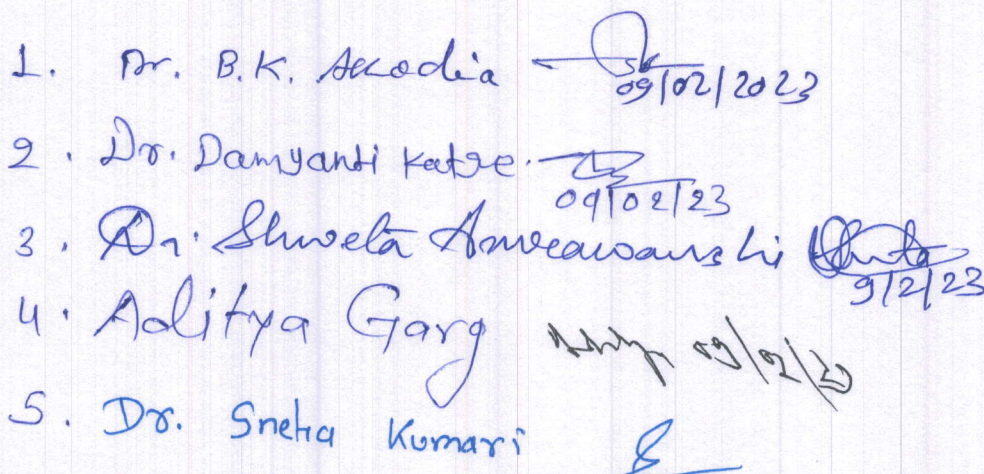 1. Dr. B.K. Akodia 09/02/2023
2. Dr. Damyanti Katre. 09/02/23
3. Dr. Shweta 9/2/23
4. Aditya Garg 09/02/23
5. Dr. Sneha Kumari